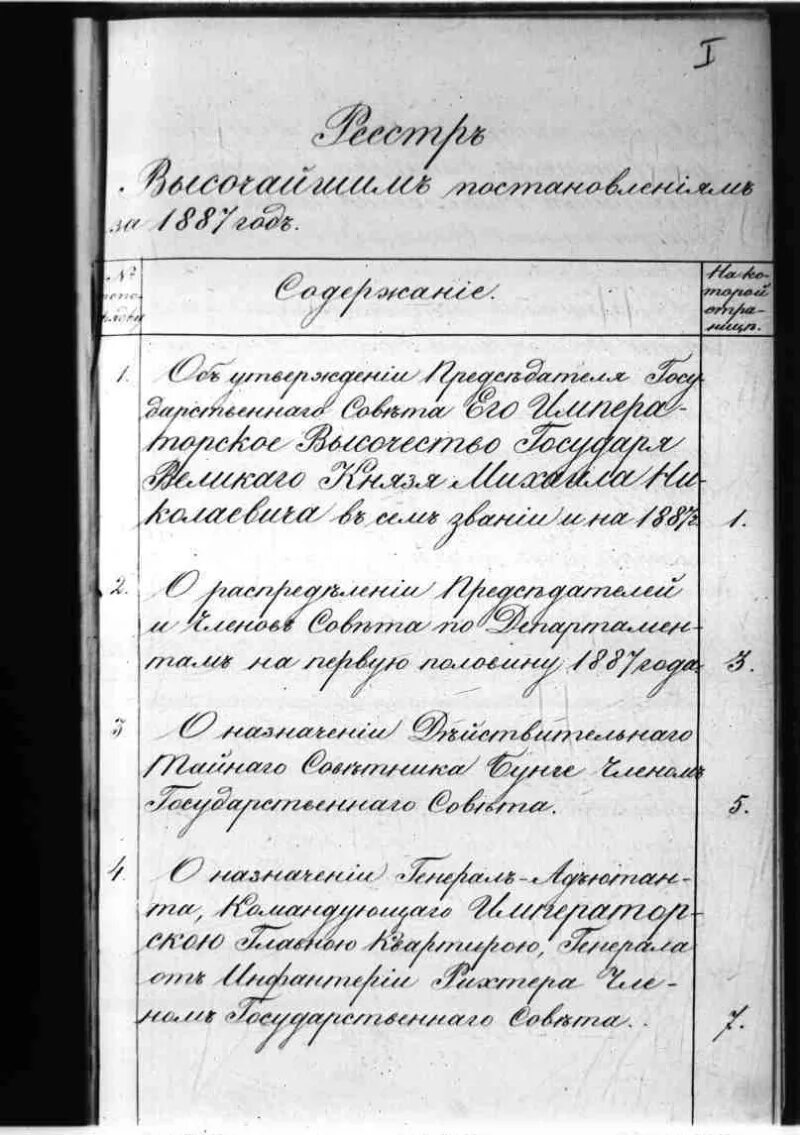 I
Реестръ
Высочайшимъ постановленіямъ
за 1887 годъ.
№
Содержаніе.
На ко-
торой
стра-
ницѣ.
1. Объ утвержденіи Предсѣдателя Госу-
дарственнаго Совѣта Его Импера-
торское Высочество Государя
Великаго Князя Михаила Ни-
колаевича въ семъ званіи и на 1887г. 1.
2. О распредѣленіи Предсѣдателей
и Членовъ Совѣта по Департамен-
тамъ на первую половину 1887 года. 3.
3 О назначеніи Дѣйствительнаго
Тайнаго Совѣтника Бунге Членомъ
Государственнаго Совѣта. 5.
4. О назначеніи Генералъ-Адъютан-
та, Командующаго Император-
скою Главною Квартирою, Генерала
отъ Инфантеріи Рихтера Чле-
номъ Государственнаго Совѣта. 7.